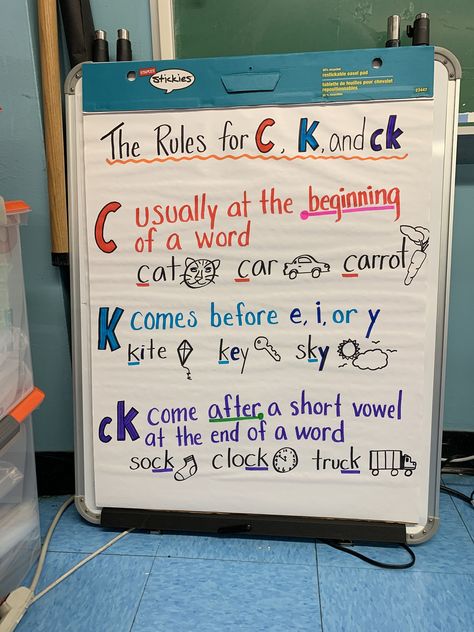 STAPLES
stickies
restickable easel pad
tablette de feuilles pour chevalet
repositionnables
23447
The Rules for C, K, and ck
C usually at the beginning
of a word
cat car carrot
K comes before e, i, or y
kite key sky
ck come after a short vowel
at the end of a word
sock clock truck